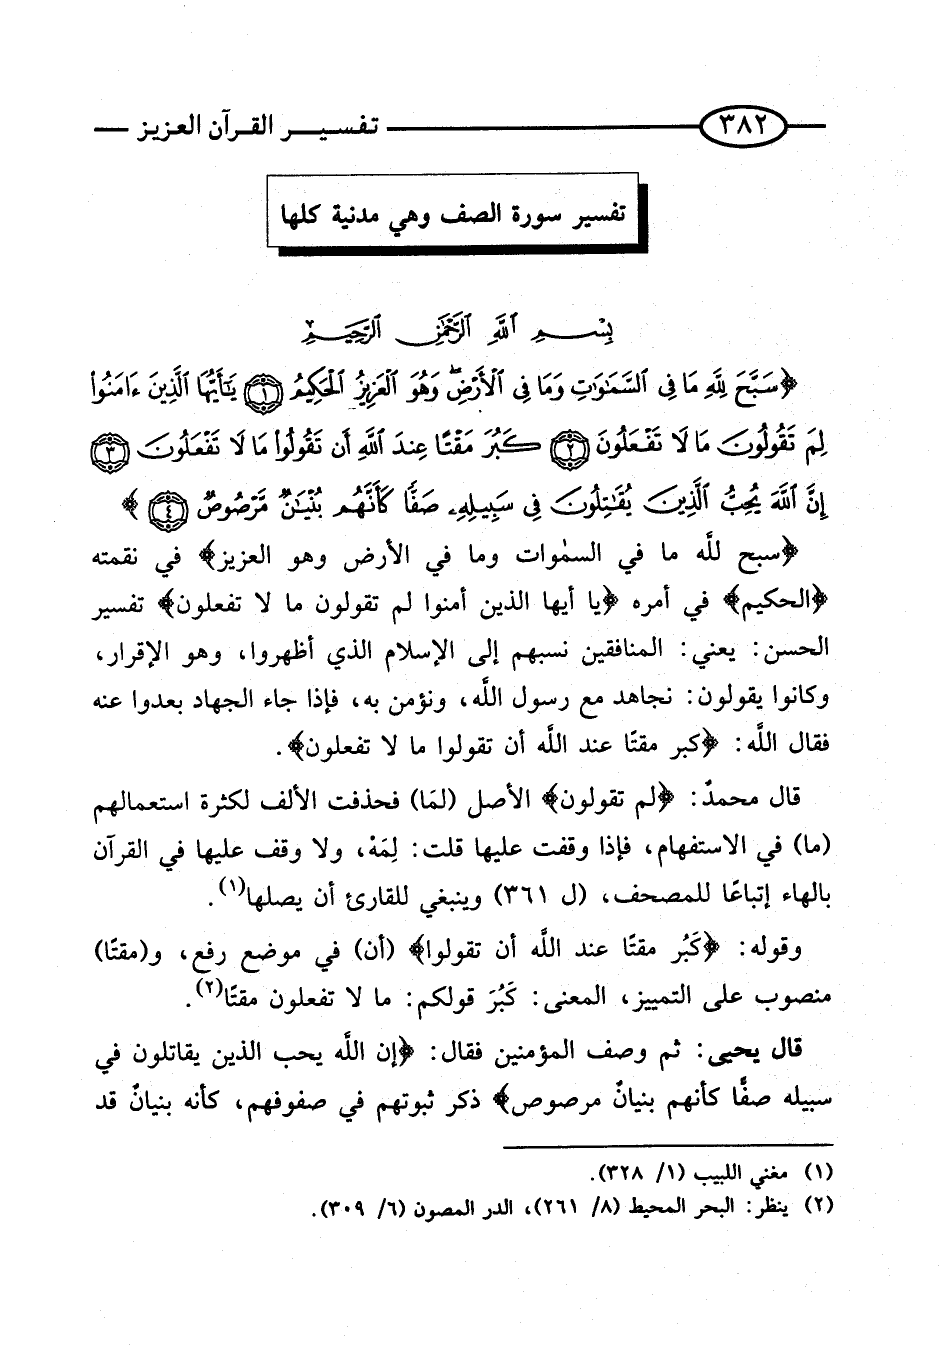 ٣٨٢ تفسير القرآن العزيز
تفسير سورة الصف وهي مدنية كلها
بِسْمِ اللَّهِ الرَّحْمَٰنِ الرَّحِيمِ
﴿سَبَّحَ لِلَّهِ مَا فِي السَّمَٰوَٰتِ وَمَا فِي الْأَرْضِ ۖ وَهُوَ الْعَزِيزُ الْحَكِيمُ ١ يَٰٓأَيُّهَا الَّذِينَ ءَامَنُوا
لِمَ تَقُولُونَ مَا لَا تَفْعَلُونَ ٢ كَبُرَ مَقْتًا عِندَ اللَّهِ أَن تَقُولُوا مَا لَا تَفْعَلُونَ ٣
إِنَّ اللَّهَ يُحِبُّ الَّذِينَ يُقَٰتِلُونَ فِي سَبِيلِهِۦ صَفًّا كَأَنَّهُم بُنْيَٰنٌ مَّرْصُوصٌ ٤﴾
﴿سبح للَّه ما في السمٰوات وما في الأرض وهو العزيز﴾ في نقمته
﴿الحكيم﴾ في أمره ﴿يا أيها الذين أمنوا لم تقولون ما لا تفعلون﴾ تفسير
الحسن: يعني: المنافقين نسبهم إلى الإسلام الذي أظهروا، وهو الإقرار،
وكانوا يقولون: نجاهد مع رسول اللَّه، ونؤمن به، فإذا جاء الجهاد بعدوا عنه
فقال اللَّه: ﴿كبر مقتًا عند اللَّه أن تقولوا ما لا تفعلون﴾.
قال محمدٌ: ﴿لم تقولون﴾ الأصل (لمَا) فحذفت الألف لكثرة استعمالهم
(ما) في الاستفهام، فإذا وقفت عليها قلت: لِمَهْ، ولا وقف عليها في القرآن
بالهاء إتباعًا للمصحف، (ل ٣٦١) وينبغي للقارئ أن يصلها(١).
وقوله: ﴿كَبُر مقتًا عند اللَّه أن تقولوا﴾ (أن) في موضع رفع، و(مقتًا)
منصوب على التمييز، المعنى: كَبُرَ قولكم: ما لا تفعلون مقتًا(٢).
قال يحيى: ثم وصف المؤمنين فقال: ﴿إن اللَّه يحب الذين يقاتلون في
سبيله صفًّا كأنهم بنيانٌ مرصوص﴾ ذكر ثبوتهم في صفوفهم، كأنه بنيانٌ قد
(١) مغني اللبيب (١/ ٣٢٨).
(٢) ينظر: البحر المحيط (٨/ ٢٦١)، الدر المصون (٦/ ٣٠٩).